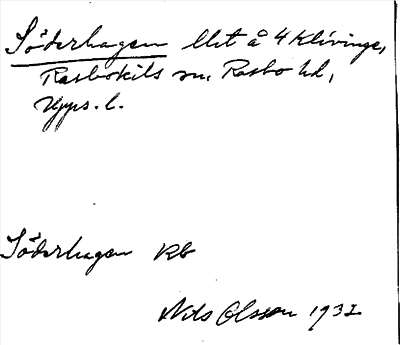 Söderhagen llet å 4 Klivinge,
Rasbokils sn, Rasbo hd,
Upps. l.
Söderhagen Rb
Nils Olsson 1932